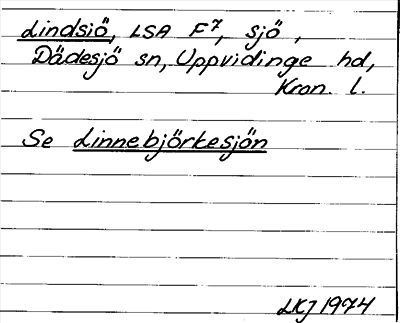 Lindsiö, LSA F7, sjö,
Dädesjö sn, Uppvidinge hd,
Kron. l.
Se Linnebjörkesjön
LKJ 1974